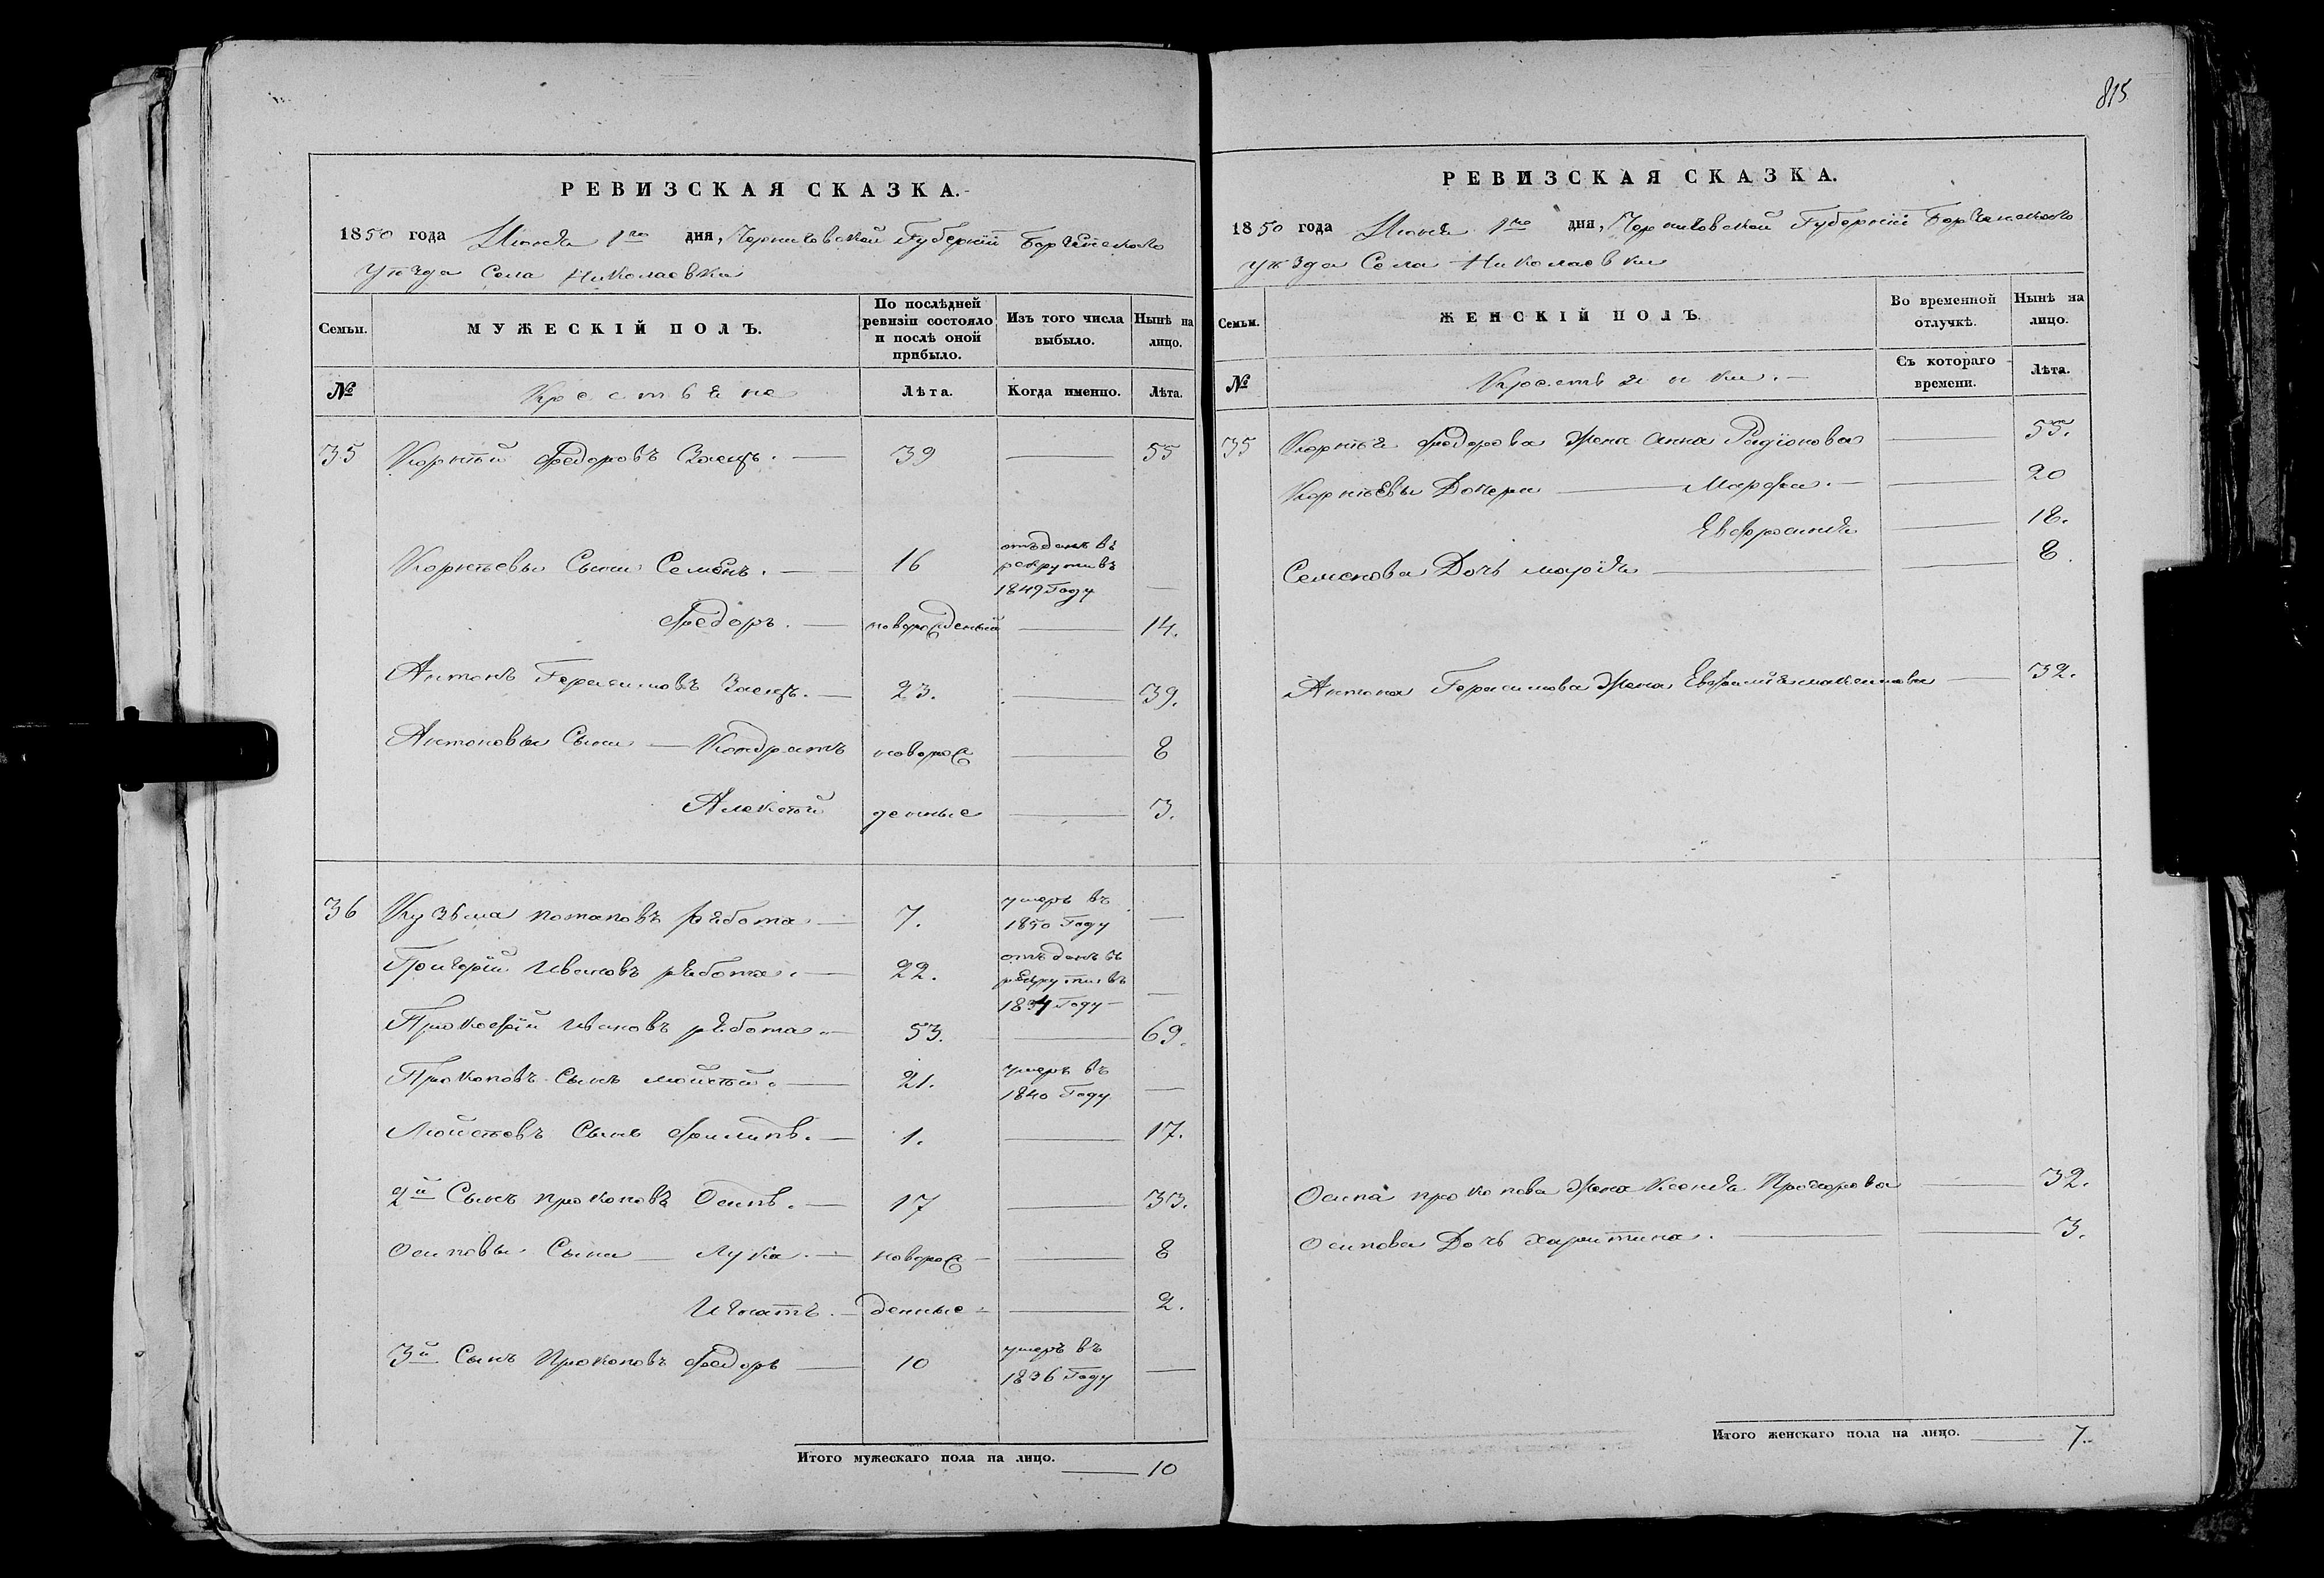 815
РЕВИЗСКАЯ СКАЗКА.
1850 года Июня 1го дня, Черниговской Губернiи Борзенского
уѣзда Села Николаевки
Семьи.
МУЖЕСКІЙ ПОЛЪ.
По послѣдней ревизіи состояло и послѣ оной прибыло.
Изъ того числа выбыло.
Нынѣ на лицо.
№
Крестьяне
Лѣта.
Когда именно.
Лѣта.
35 Корнѣй Федоровъ Заецъ. — 39 — 55
Корнѣевы Сыни Семенъ. — 16 отъданъ въ рекруты въ 1849 Году —
Федоръ. — новорожденый — 14.
Антонъ Герасимовъ Заецъ. — 23. — 39.
Антоновы Сыни — Кондратъ новорож — 8
Алексѣй денные — 3.
36 Кузьма Потаповъ рябота — 7. умеръ въ 1850 Году —
Григорiй Ивановъ рябота. — 22. отъданъ въ рекруты въ 1834 Году —
Прокофiй Ивановъ рябота. — 53. — 69.
Прокоповъ Сынъ Мойсѣй. — 21. умеръ въ 1840 Году —
Мойсѣевъ Сынъ Филипъ. — 1. — 17.
2й Сынъ Прокоповъ Осипъ. — 17 — 33.
Осиповы Сыни — Лука. — новорож — — 8
Игнатъ. — денные — — 2.
3й Сынъ Прокоповъ Федоръ — 10 умеръ въ 1836 Году —
Итого мужескаго пола на лицо. — 10
РЕВИЗСКАЯ СКАЗКА.
1850 года Июня 1го дня, Черниговской Губернiи Борзенского
уѣзда Села Николаевки
Семьи.
ЖЕНСКІЙ ПОЛЪ.
Во временной отлучкѣ.
Нынѣ на лицо.
№
Крестьянки. —
Съ котораго времени.
Лѣта.
35 Корнѣя Федорова Жена Анна Радiонова — 55.
Корнѣевы Дочери — Марфа. — — 20
Евфросиня — 18.
Семенова Дочь марiя — — 8.
Антона Герасимова Жена Евфимiя — 32.
Осипа прокопова Жена Ксения Прохорова — 32.
Осипова Дочь харитина. — — 3.
Итого женскаго пола на лицо. — 7.